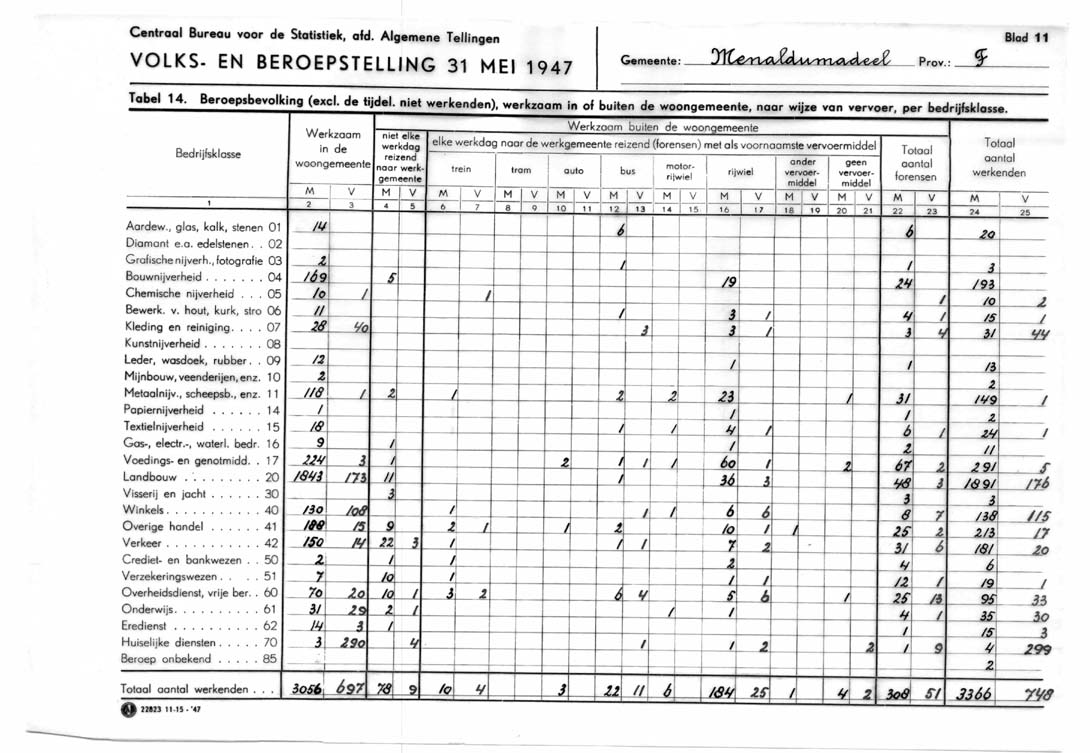 Centraal Bureau voor de Statistiek, afd. Algemene Tellingen
VOLKS- EN BEROEPSTELLING 31 MEI 1947
Blad 11
Gemeente: Menaldumadeel Prov.: F
Tabel 14. Beroepsbevolking (excl. de tijdel. niet werkenden), werkzaam in of buiten de woongemeente, naar wijze van vervoer, per bedrijfsklasse.
Bedrijfsklasse
Werkzaam in de woongemeente
Werkzaam buiten de woongemeente
niet elke werkdag reizend naar werkgemeente
elke werkdag naar de werkgemeente reizend (forensen) met als voornaamste vervoermiddel
trein tram auto bus motor-rijwiel rijwiel ander vervoer-middel geen vervoer-middel
Totaal aantal forensen
Totaal aantal werkenden
M V M V M V M V M V M V M V M V M V M V M V M V
1 2 3 4 5 6 7 8 9 10 11 12 13 14 15 16 17 18 19 20 21 22 23 24 25
Aardew., glas, kalk, stenen 01 14 6 6 20
Diamant e.a. edelstenen . . 02
Grafische nijverh., fotografie 03 2 1 1 3
Bouwnijverheid . . . . . . . 04 169 5 19 24 193
Chemische nijverheid . . . 05 10 1 1 1 10 2
Bewerk. v. hout, kurk, stro 06 11 1 3 1 4 1 15 1
Kleding en reiniging. . . . 07 28 40 3 3 1 3 4 31 44
Kunstnijverheid . . . . . . . 08
Leder, wasdoek, rubber. . 09 12 1 1 13
Mijnbouw, veenderijen, enz. 10 2 2
Metaalnijv., scheepsb., enz. 11 118 1 2 1 2 2 23 1 31 149 1
Papiernijverheid . . . . . . 14 1 1 1 2
Textielnijverheid . . . . . . 15 18 1 1 4 1 6 1 24 1
Gas-, electr.-, waterl. bedr. 16 9 1 1 2 11
Voedings- en genotmidd. . 17 224 3 1 2 1 1 1 60 1 2 67 2 291 5
Landbouw . . . . . . . . . 20 1843 173 11 1 36 3 48 3 1891 176
Visserij en jacht . . . . . . 30 3 3 3
Winkels . . . . . . . . . . . 40 130 108 1 1 1 6 6 8 7 138 115
Overige handel . . . . . . 41 188 15 9 2 1 1 2 10 1 1 25 2 213 17
Verkeer . . . . . . . . . . . 42 150 14 22 3 1 1 1 7 2 31 6 181 20
Crediet- en bankwezen . . 50 2 1 1 2 4 6
Verzekeringswezen . . . 51 7 10 1 1 1 12 1 19 1
Overheidsdienst, vrije ber. . 60 70 20 10 1 3 2 6 4 5 6 1 25 13 95 33
Onderwijs. . . . . . . . . . 61 31 29 2 1 1 1 4 1 35 30
Eredienst . . . . . . . . . . 62 14 3 1 1 15 3
Huiselijke diensten . . . . . 70 3 290 4 1 1 2 2 1 9 4 299
Beroep onbekend . . . . . 85 2
Totaal aantal werkenden . . . 3056 697 78 9 10 4 3 22 11 6 184 25 1 4 2 308 51 3366 748
22823 11-15 - '47